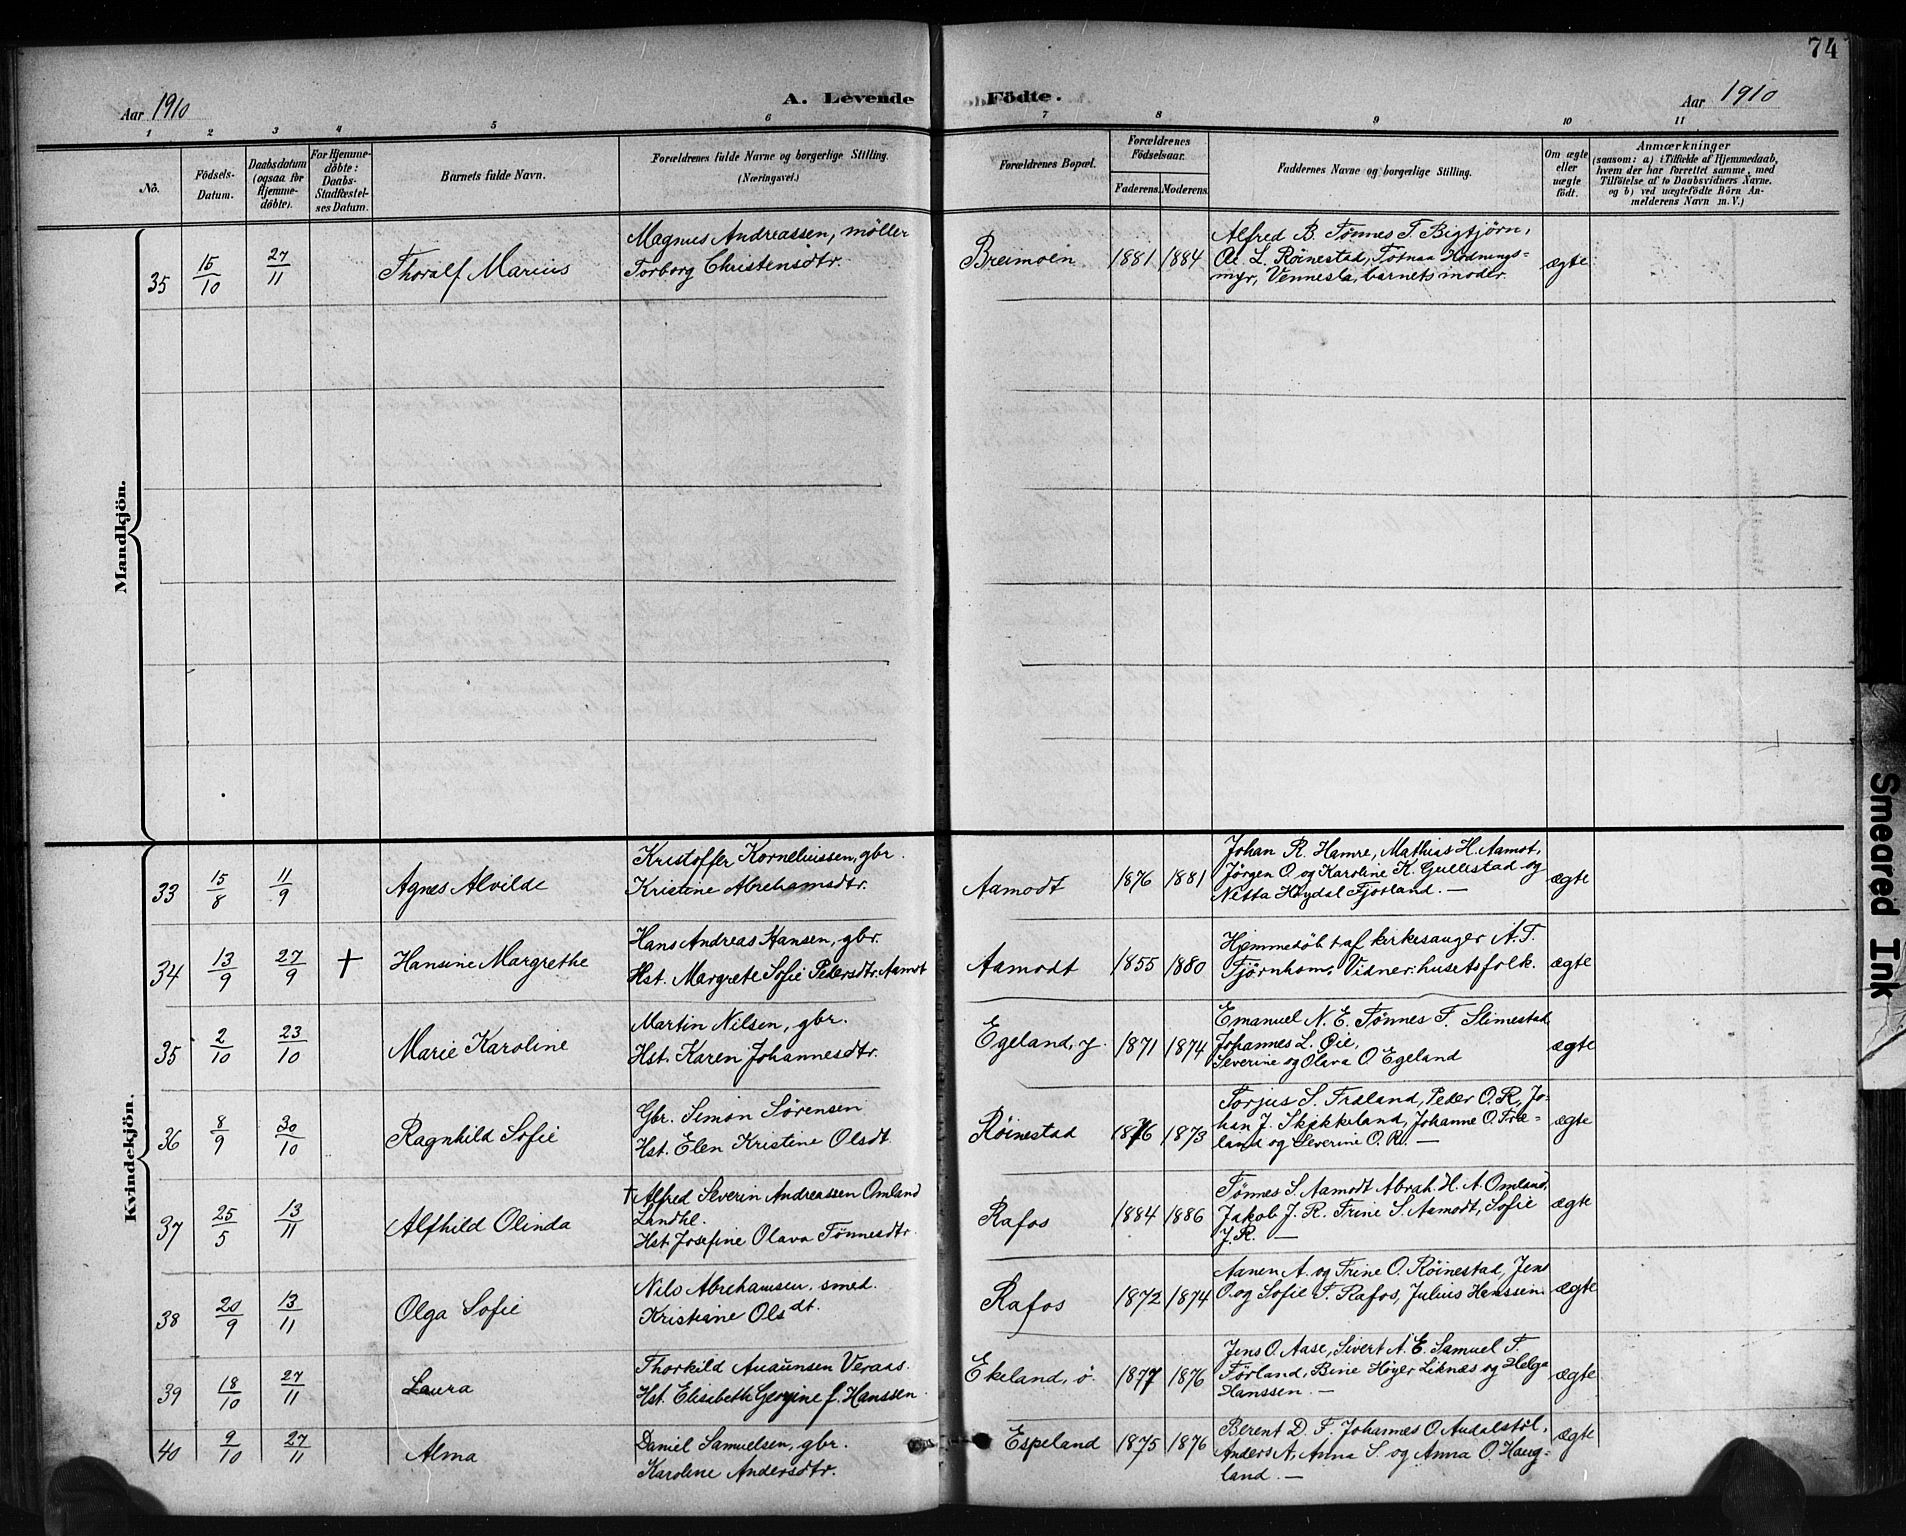 74
Aar 1910
A. Levende Födte.
Aar 1910
1 2 3 4 5 6 7 8 9 10 11
No.
Födsels-Datum.
Daabsdatum (ogsaa for Hjemme-döbte).
For Hjemme-döbte: Daabs-Stadfæstel-ses Datum.
Barnets fulde Navn.
Forældrenes fulde Navne og borgerlige Stilling.
(Næringsvei.)
Forældrenes Bopæl.
Forældrenes Födselsaar.
Faderens. Moderens.
Faddernes Navne og borgerlige Stilling.
Om ægte eller uægte födt.
Anmærkninger
(saasom: a) i Tilfælde af Hjemmedaab,
hvem der har forrettet samme, med
Tilföielse af to Daabsvidners Navne,
og b) ved uægtefödte Börn An-
melderens Navn m. V.)
Mandkjön.
35 15/10 27/11 Thoralf Marius
Magnus Andreassen, møller
Torborg Christensdtr.
Breimoen 1881 1884
Alfred B. Tønnes T. Bigtjørn,
L. Røinestad,
myr, Vennesla, barnets moder.
ægte
Kvindekjön.
33 15/8 11/9 Agnes Alvilde
Kristoffer Korneliussen, gbr.
Kristine Abrehamsdtr.
Aamodt 1876 1881
Johan R. Hamre, Mathias H. Aamot,
Jørgen O. og Karoline K. Gullestad og
Netta Høydal Fjotland. —
ægte
34 13/9 27/9 + Hansine Margrethe
Hans Andreas Hansen, gbr.
Hst. Margrete Sofie Pedersdtr. Aamot
Aamodt 1855 1880
Hjemmedøbt af kirkesanger A. T.
Tjørnhom, Vidner: husets folk.
ægte
35 2/10 23/10 Marie Karoline
Martin Nilsen, gbr.
Hst. Karen Johannesdtr.
Egeland, y. 1871 1874
Emanuel N. E. Tønnes F. Slimestad
Johannes L. Øie,
Severine og Olava O Egeland
ægte
36 8/9 30/10 Ragnhild Sofie
Gbr. Simon Sørensen
Hst. Elen Kristine Olsdt.
Røinestad 1876 1873
Torjus S. Træland, Peder O. R, Jo-
han J. Skjekkeland, Johanne O. Træ-
land og Severine O. R. —
ægte
37 25/5 13/11 Alfhild Olinda
Alfred Severin Andreassen Omland
Landhl.
Hst. Josefine Olava Tønnesdtr.
Rafos 1884 1886
Tønnes S. Aamodt Abrah. H. A. Omland,
Jakob J. R. Trine S. Aamodt, Sofie
J. R. —
ægte
38 20/9 13/11 Olga Sofie
Nils Abrehamsen, smed.
Kristiane Olsdt.
Rafos 1872 1874
Aanen A. og Trine O. Røinestad, Jens
O. og Sofie T. Rafos, Julius Hanssen.
ægte
39 18/10 27/11 Laura
Thorkild Auaunsen Veraas.
Hst. Elisabeth Georgine f. Hanssen.
Ekeland, ø. 1877 1876
Jens O. Aase, Sivert A. E. Samuel T.
Førland, Bine Høyer Liknæs og Helga
Hanssen. —
ægte
40 9/10 27/11 Alma
Daniel Samuelsen, gbr.
Karoline Andersdtr.
Espeland 1875 1876
Berent D. F. Johannes O. Audalstøl,
Anders A, Anna S. og Anna O. Haug-
land. —
ægte
Smeared Ink